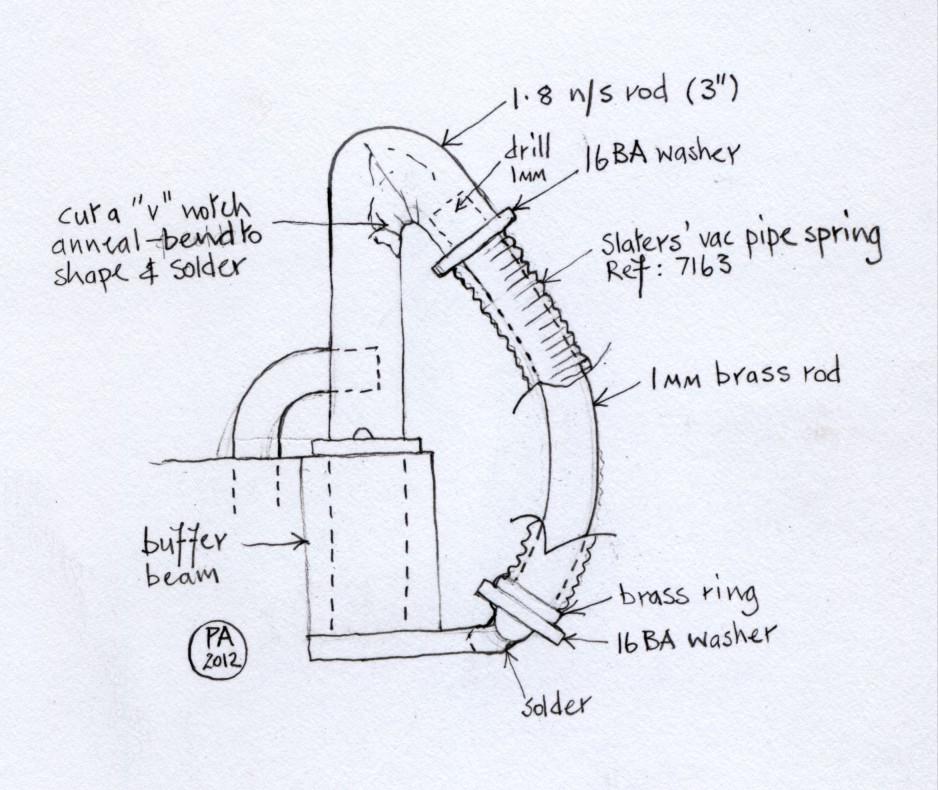 1.8 n/s rod (3")
drill
1MM
16BA washer
cut a "v" notch
anneal-bend to
shape & solder
Slaters' vac pipe spring
Ref: 7163
1MM brass rod
buffer
beam
brass ring
16BA washer
solder
PA
2012